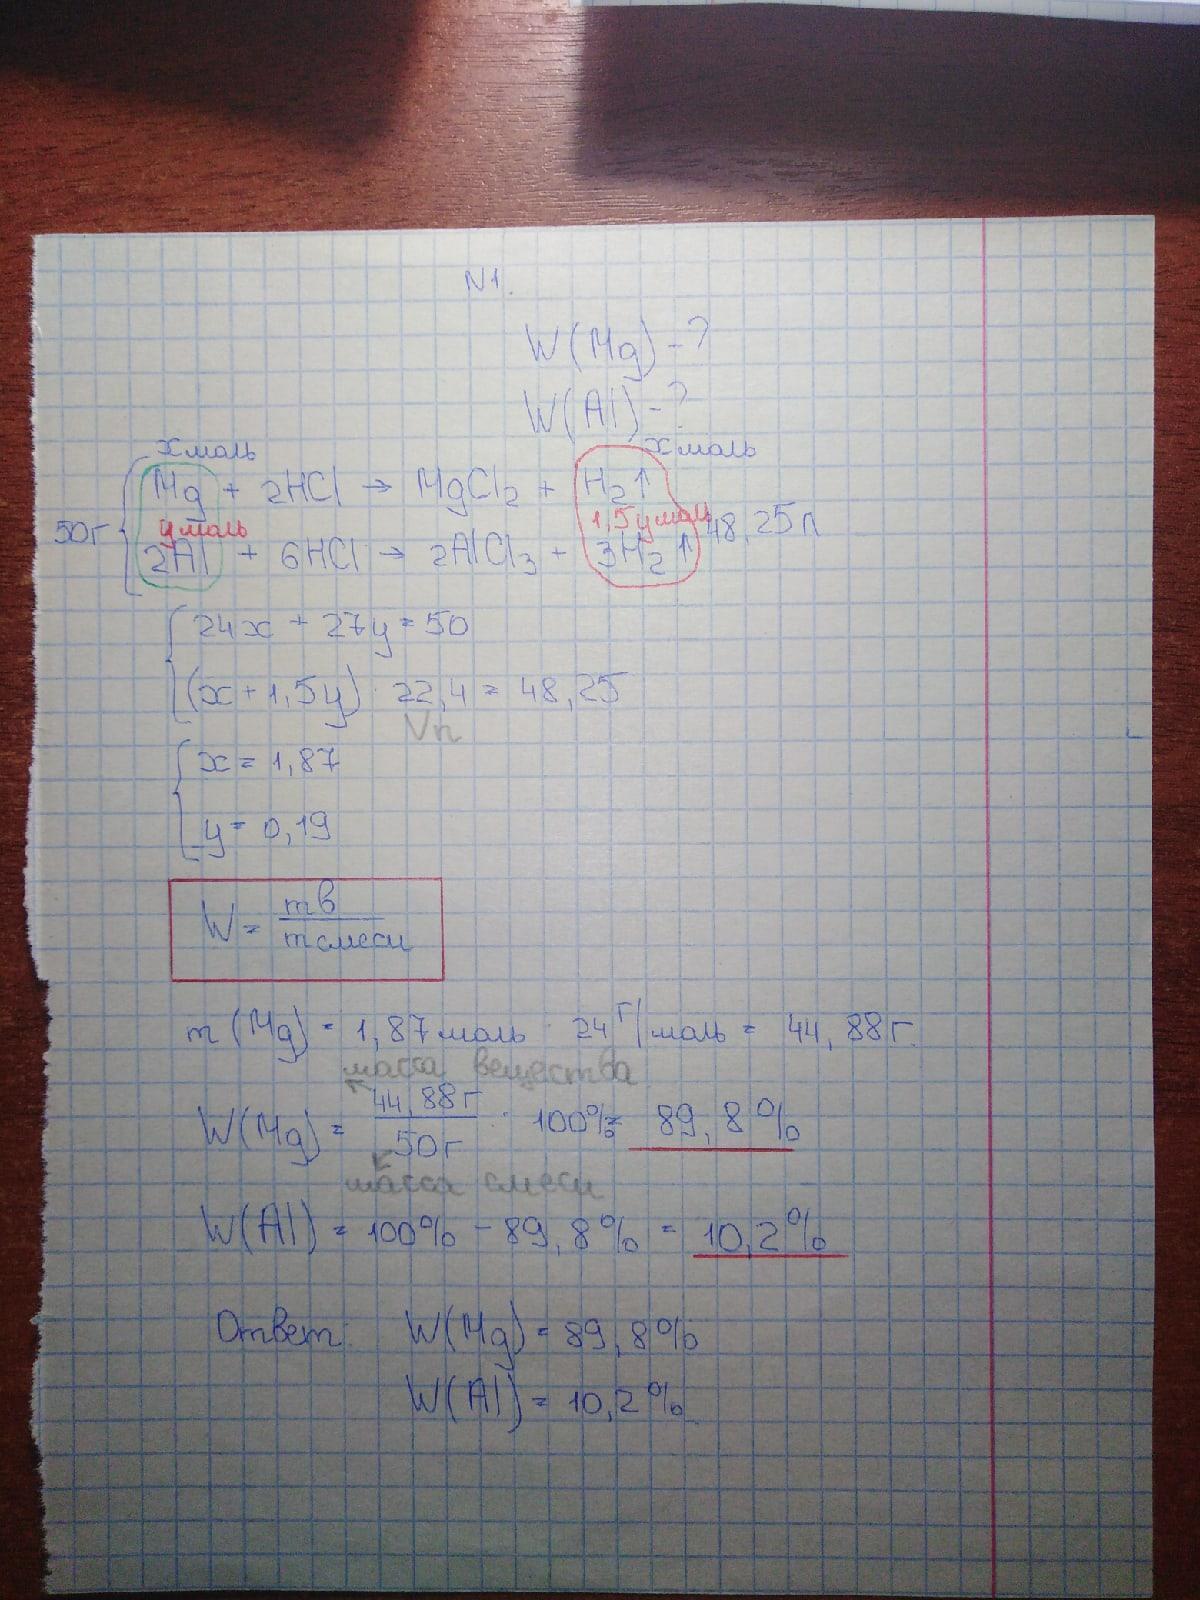 N1.
W(Mg) - ?
W(Al) - ?
x моль x моль
Mg + 2HCl → MgCl2 + H2↑
50г y моль 1,5y моль 48,25л
2Al + 6HCl → 2AlCl3 + 3H2↑
24x + 27y = 50
(x + 1,5y) · 22,4 = 48,25
Vn
x = 1,87
y = 0,19
W = mв / mсмеси
m(Mg) = 1,87 моль · 24 г/моль = 44,88г.
масса вещества
W(Mg) = 44,88г / 50г · 100% = 89,8%
масса смеси
W(Al) = 100% - 89,8% = 10,2%
Ответ: W(Mg) = 89,8%
W(Al) = 10,2%